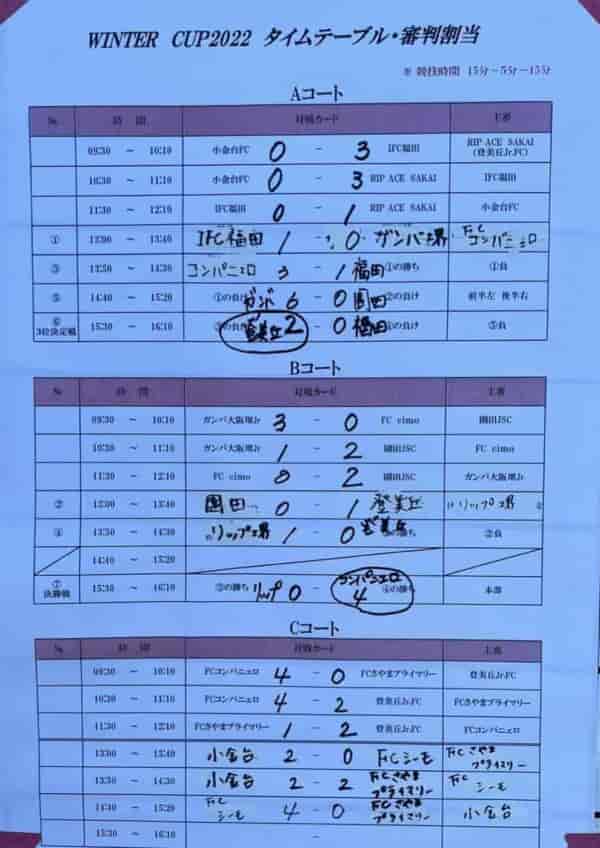 WINTER CUP2022 タイムテーブル・審判割当
※ 競技時間 15分－5分－15分
Aコート
№ 時 間 対戦カード 主審
09:30 ～ 10:10 小金台FC 0 － 3 IFC福田 RIP ACE SAKAI (登美丘Jr.FC)
10:30 ～ 11:10 小金台FC 0 － 3 RIP ACE SAKAI IFC福田
11:30 ～ 12:10 IFC福田 0 － 1 RIP ACE SAKAI 小金台FC
① 13:00 ～ 13:40 IFC福田 1 － 0 ガンバ堺 FCコンパニエロ
③ 13:50 ～ 14:30 コンパニエロ 3 － 1 福田 ①の勝ち ①負
⑤ 14:40 ～ 15:20 ①の負け ガンバ 6 － 0 園田 ②の負け 前半左 後半右
⑥ 3位決定戦 15:30 ～ 16:10 の負け 登美丘 2 － 0 福田 の負け ⑤負
Bコート
№ 時 間 対戦カード 主審
09:30 ～ 10:10 ガンバ大阪堺Jr 3 － 0 FC cimo 園田JSC
10:30 ～ 11:10 ガンバ大阪堺Jr 1 － 2 園田JSC FC cimo
11:30 ～ 12:10 FC cimo 0 － 2 園田JSC ガンバ大阪堺Jr
② 13:00 ～ 13:40 園田 0 － 1 登美丘 リップ堺
④ 13:50 ～ 14:30 リップ堺 1 － 0 登美丘 の勝ち ②負
14:40 ～ 15:20
⑦ 決勝戦 15:30 ～ 16:10 ③の勝ち リップ 0 － 4 コンパニエロ ④の勝ち 本部
Cコート
№ 時 間 対戦カード 主審
09:30 ～ 10:10 FCコンパニェロ 4 － 0 FCさやまプライマリー 登美丘Jr.FC
10:30 ～ 11:10 FCコンパニェロ 4 － 2 登美丘Jr.FC FCさやまプライマリー
11:30 ～ 12:10 FCさやまプライマリー 1 － 2 登美丘Jr.FC FCコンパニェロ
13:00 ～ 13:40 小金台 2 － 0 FCシーモ FCさやまプライマリー
13:50 ～ 14:30 小金台 2 － 2 FCさやまプライマリー FCシーモ
14:40 ～ 15:20 FCシーモ 4 － 0 FCさやまプライマリー 小金台
15:30 ～ 16:10 －